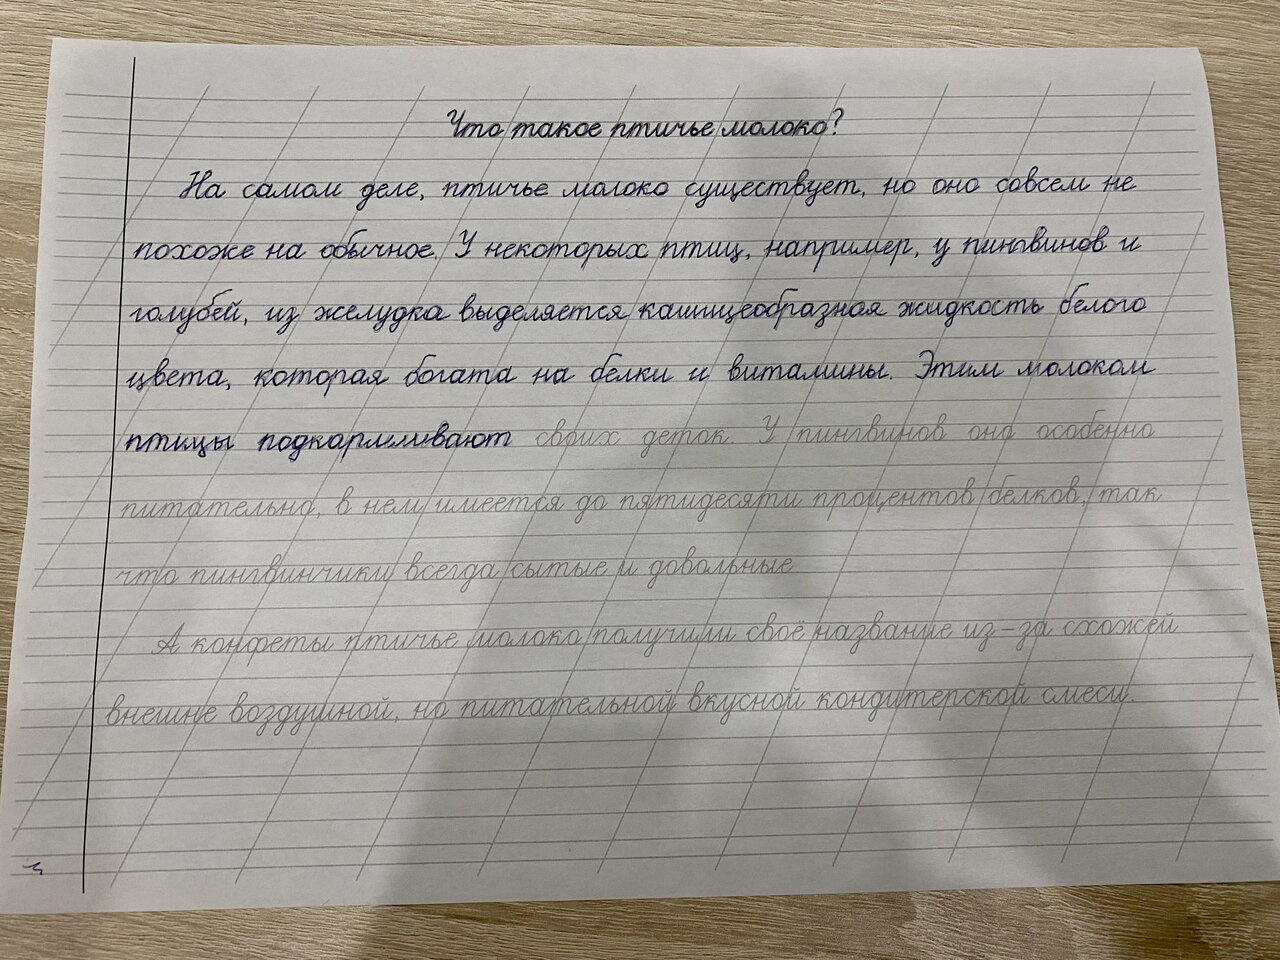 Что такое птичье молоко?
На самом деле, птичье молоко существует, но оно совсем не
похоже на обычное. У некоторых птиц, например, у пингвинов и
голубей, из желудка выделяется кашицеобразная жидкость белого
цвета, которая богата на белки и витамины. Этим молоком
птицы подкармливают своих деток. У пингвинов оно особенно
питательно, в нем имеется до пятидесяти процентов белков, так
что пингвинчики всегда сытые и довольные.
А конфеты птичье молоко получили своё название из-за схожей
внешне воздушной, но питательной вкусной кондитерской смеси.